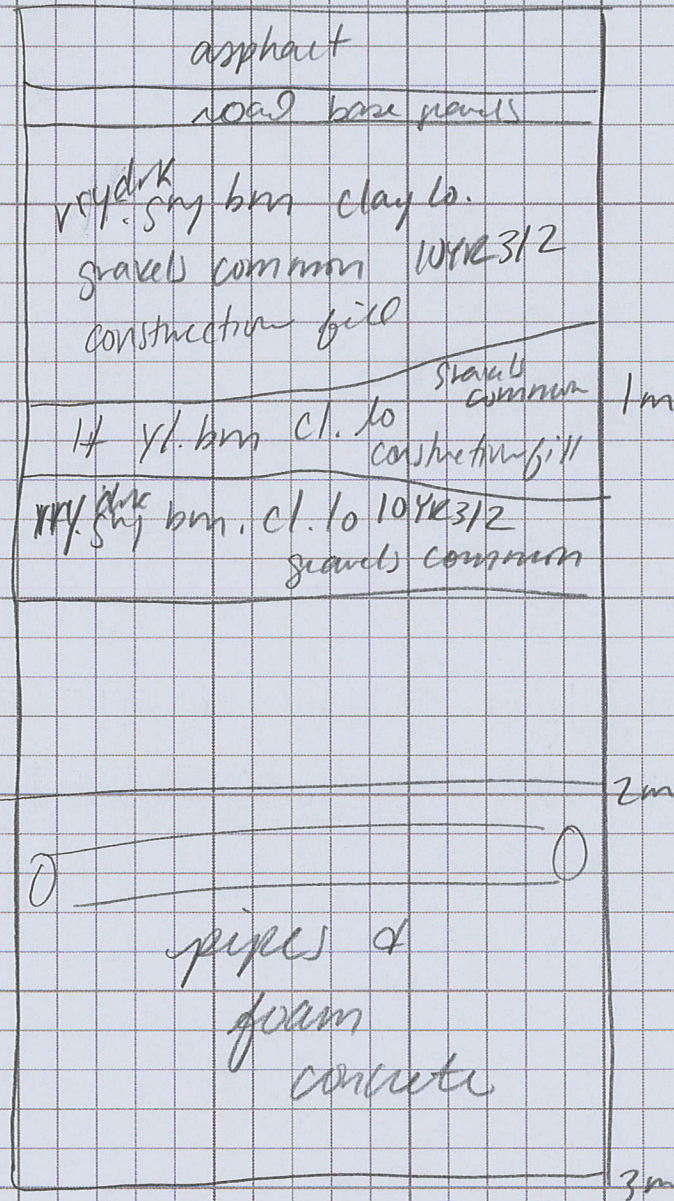 asphalt
road base gravels
vry drk gry brn clay lo.
gravels common 10YR3/2
construction fill
gravels
common
1m
lt yl. brn cl. lo
construction fill
vry. drk gry brn. cl. lo 10YR3/2
gravels common
2m
pipes &
foam
concrete
3m